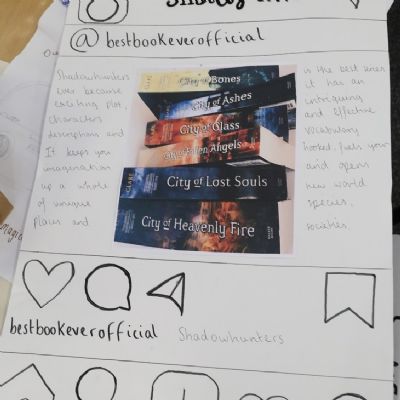 @ bestbookeverofficial
Shadowhunters is the best series
ever because it has an
exciting plot, intriguing
characters and effective
descriptions and vocabulary
It keeps you hooked, fuels your
imagination and opens
up a whole new world
of unique species,
places and societies.
City of Bones
City of Ashes
City of Glass
City of Fallen Angels
City of Lost Souls
City of Heavenly Fire
bestbookeverofficial Shadowhunters